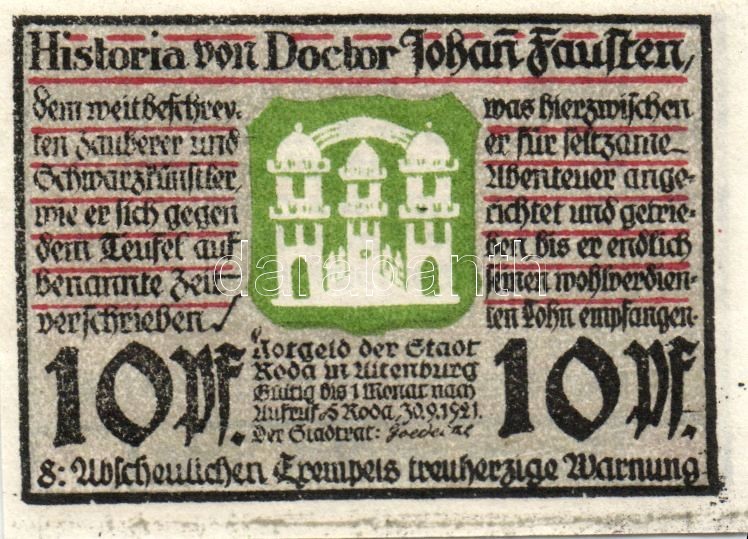 Historia von Doctor Johañ Fausten,
dem weitbeschrey-
ten Zauberer und
Schwarzkünstler,
wie er sich gegen
dem Teufel auf
benannte Zeit
verschrieben
was hierzwischen
er für seltzame
Abenteuer ange-
richtet und getrie-
ben bis er endlich
seinen wohlverdien-
ten Lohn empfangen
darabanth
10 Pf.
Notgeld der Stadt
Roda in Altenburg
Gültig bis 1 Monat nach
Aufruf Roda, 30.9.1921.
Der Stadtrat: Goedecke
10 Pf.
8: Abscheulichen Exempels treuherzige Warnung